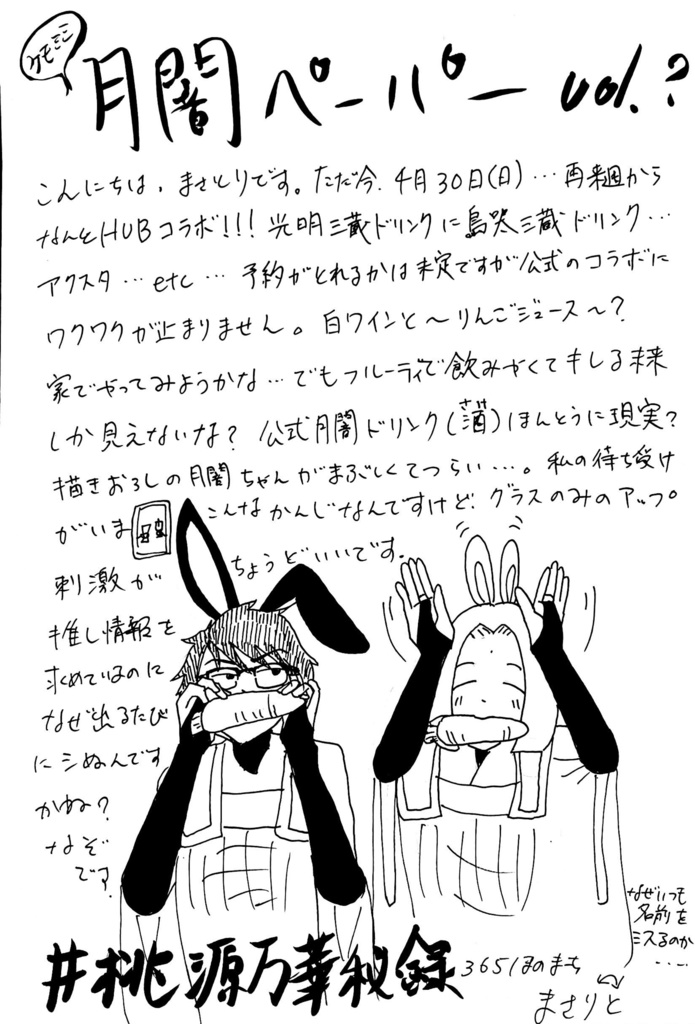 ケモミミ
月闇ペーパー vol.?
こんにちは、まさとりです。ただ今、4月30日(日)…再来週から
なんとHUBコラボ!!! 光明三蔵ドリンクに烏哭三蔵ドリンク…
アクスタ…etc… 予約がとれるかは未定ですが公式のコラボに
ワクワクが止まりません。白ワインと〜りんごジュース〜?
家でやってみようかな…でもフルーティで飲みやくてキレる未来
しか見えないな? 公式月闇ドリンク(酒)ほんとうに現実?
さけ
描きおろしの月闇ちゃんがまぶしくてつらい…。私の待ち受け
がいま こんなかんじなんですけど、グラスのみのアップ。
ちょうどいいです。
刺激が
推し情報を
求めているのに
なぜ出るたび
にシぬんです
かね?
なぞ
です?
#桃源万華秘録
365 ほのまち
なぜいつも
名前を
ミスるのか
....
まさりと